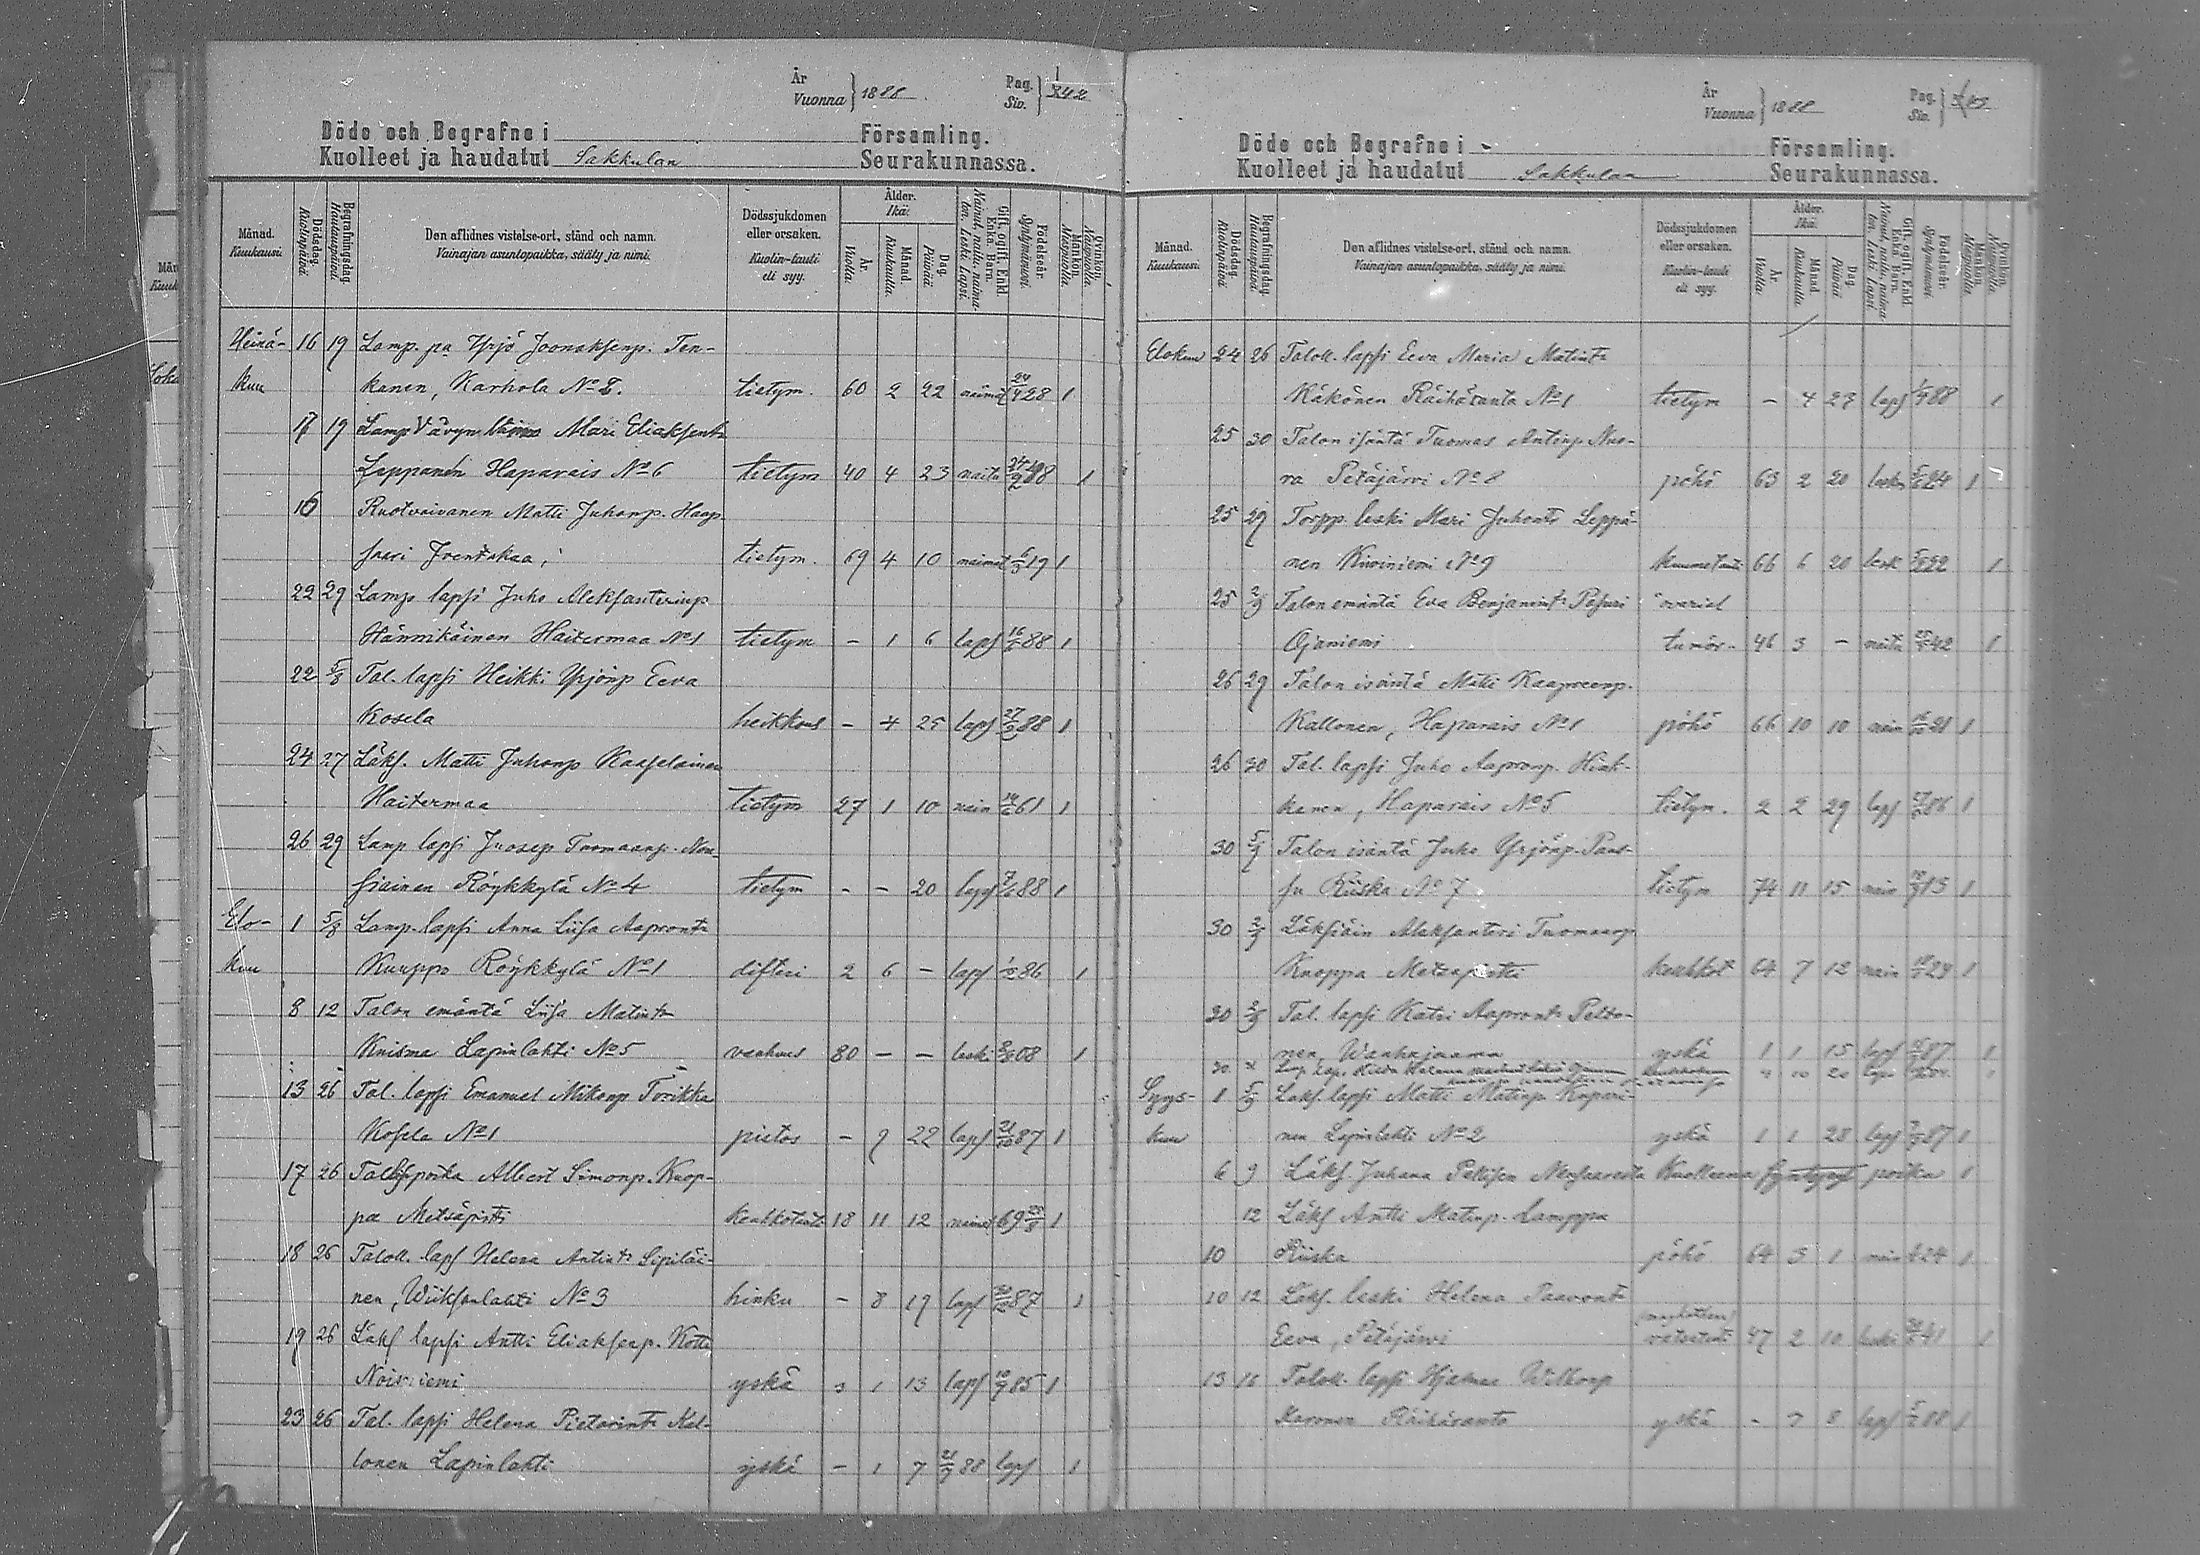 År
Vuonna } 1888
Pag.
Siv. } 342
Döde och Begrafne i Församling.
Kuolleet ja haudatut Sakkulan Seurakunnassa.
Månad. Kuukausi.
Dödsdag. Kuolinpäivä.
Begrafningsdag. Hautauspäivä.
Den aflidnes vistelse-ort, stånd och namn.
Vainajan asuntopaikka, sääty ja nimi.
Dödssjukdomen eller orsaken.
Kuolin-tauti eli syy.
Ålder. Ikä.
År. Vuotta.
Månad. Kuukautta.
Dag. Päivää.
Gift, ogift, Enkl. Enka. Barn.
Nainut, naitu, naimaton. Leski. Lapsi.
Födelseår. Syntymävuosi.
Mankön. Miespuolia.
Qvinkön. Naispuolia.
Heinä- 16 19 Lamp. pa Yrjö Joonaksenp. Ten-
kuu kanen, Karhola No 2. tietym. 60 2 22 naimat 24/4 28 1
17 19 Lamp Vävyn Mari Eliaksent
Leppänen Haparais No 6 tietym 40 4 23 naitu 1
16 Ruotivaivanen Matti Juhonp. Haap
saari tietym. 69 4 10 naimat 6/3 19 1
22 29 Lamp lapsi Juho Aleksanterinp
Hännikäinen Haitermaa No 1 tietym – 1 6 laps 16/6 88 1
22 5/8 Tal. lapsi Heikki Yrjönp Eeva
Kosela heikkous – 4 25 laps 27/2 88 1
24 27 Läks. Matti Juhonp Kaaselainen
Haitermaa tietym 27 1 10 nain 14/6 61 1
26 29 Lamp lapsi Juosep Tuomaanp. Nou-
siainen Röykkylä No 4 tietym - - 20 laps 7/6 88 1
Elo- 1 5/8 Lamp. lapsi Anna Liisa Aapront
kuu Kuuppo Röykkylä No 1 difteri 2 6 – laps 86 1
8 12 Talon emäntä Liisa Matint
Kuisma Lapinlahti No 5 vanhuus 80 – – leski 08 1
13 26 Tal. lapsi Emanuel Mikonp Torikka
Kosela No 1 pistos – 9 22 laps 21/10 87 1
17 26 Tal poika Albert Simonp. Kuop-
pa Metsäpirtti keuhkotauti 18 11 12 naimat 69 1
18 26 Taloll. laps Helena Antint Sipiläi-
nen, Wiiksanlahti No 3 hinku – 8 19 laps 87 1
19 26 Läks lapsi Antti Eliaksenp. Kotti
Noisniemi yskä 3 1 13 laps 85 1
23 26 Tal. lapsi Helena Pietarint Kal-
lonen Lapinlahti yskä – 1 7 21/7 88 laps 1
År
Vuonna } 1888
Pag.
Siv. }
Döde och Begrafne i Församling.
Kuolleet ja haudatut Sakkulan Seurakunnassa.
Månad. Kuukausi.
Dödsdag. Kuolinpäivä.
Begrafningsdag. Hautauspäivä.
Den aflidnes vistelse-ort, stånd och namn.
Vainajan asuntopaikka, sääty ja nimi.
Dödssjukdomen eller orsaken.
Kuolin-tauti eli syy.
Ålder. Ikä.
År. Vuotta.
Månad. Kuukautta.
Dag. Päivää.
Gift, ogift, Enkl. Enka. Barn.
Nainut, naitu, naimaton. Leski. Lapsi.
Födelseår. Syntymävuosi.
Mankön. Miespuolia.
Qvinkön. Naispuolia.
Elokuu 24 26 Taloll. lapsi Eeva Maria Matint
Käkönen Räihäranta No 1 tietym – 4 23 laps 1/4 88 1
25 30 Talon isäntä Tuomas Antinp. Nuo-
ra Petäjärvi No 8 pöhö 63 2 20 leski 5/6 24 1
25 29 Torpp. leski Mari Juhont Leppä-
nen Kiviniemi No 9 kuumetauti 66 6 20 lesk 22 1
25 2/9 Talon emäntä Eva Benjamint Pasuri ovarial
Ojaniemi tumör- 46 3 – naitu 42 1
26 29 Talon isäntä Matti Kaapreenp.
Kallonen, Haparais No 1 pöhö 66 10 10 nain 21 1
26 30 Tal. lapsi Juho Aapronp. Hiuk-
kanen, Haparais No 5 tietym. 2 2 29 laps 86 1
30 5/9 Talon isäntä Juho Yrjönp. Paas-
su Riiska No 7 tietym 74 11 15 nain 13 1
30 2/9 Läksiäin Aleksanteri Tuomaanp
Kuoppa Metsäpirtti keuhkot 64 7 12 nain 1
30 2/9 Tal. lapsi Katri Aapront Pelto-
nen, Wanhajaama yskä 1 1 15 laps 87 1
30 Hilda Helena
Syys- 1 5/9 Läks. lapsi Matti Matinp Kaponi-
kuu nen Lapinlahti No 2 yskä 1 1 28 laps 87 1
6 9 Läks. Juhana Pekisen Kuolleena poika 1
12 Läks Antti Matinp. Lamppu
10 Riiska pöhö 64 3 1 nain 24 1
10 12 Läks. leski Helena Paavont
Eeva, Petäjärvi vatsataut 47 2 10 leski 41 1
13 16 Taloll. lapsi Hjalmar Wilhonp
Karonen Räihäranta yskä - 7 8 laps 88 1